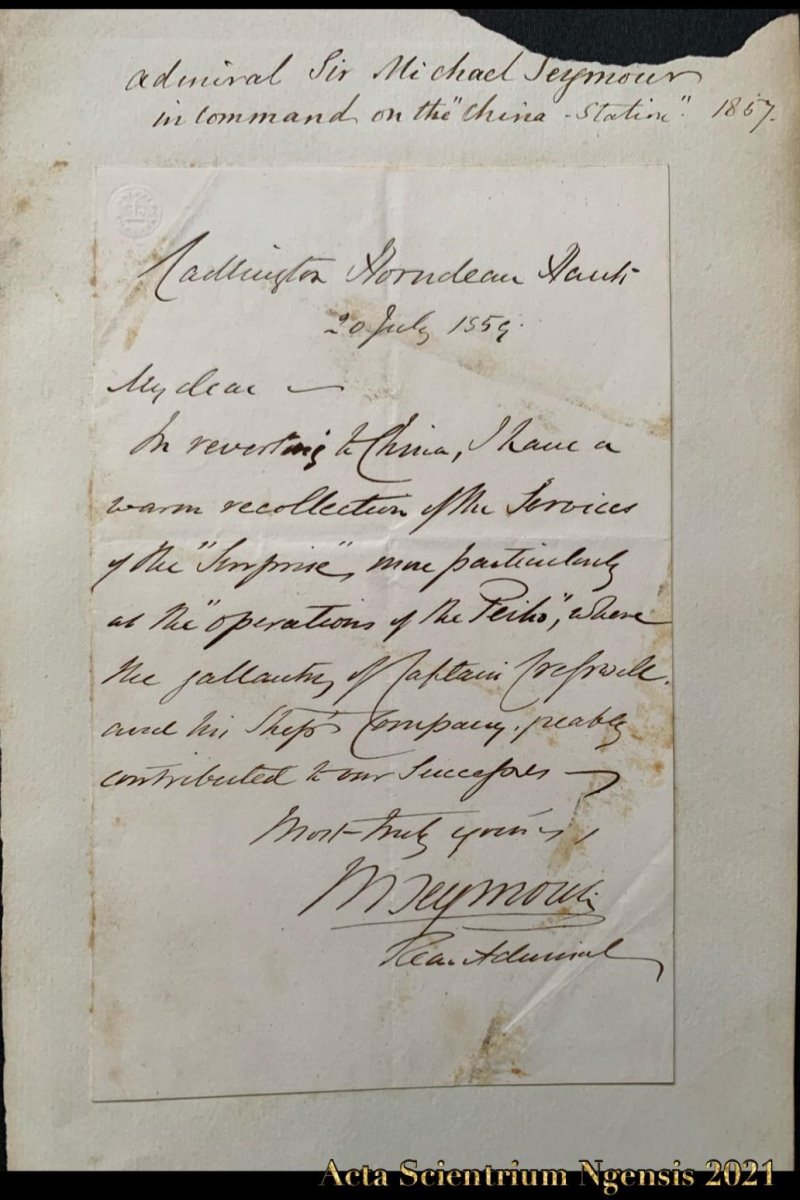 Admiral Sir Michael Seymour
in Command on the "China - Station". 1857.
Cadlington Horndean Hants
20 July 1859.
My dear —
In reverting to China, I have a
warm recollection of the Services
of the "Surprise", more particularly
at the "operations of the Peiho", where
the gallantry of Captain Cresswell.
and his Ship's Company, greatly
contributed to our Successes —
Most truly yours,
M Seymour
Rear Admiral
Acta Scientrium Ngensis 2021